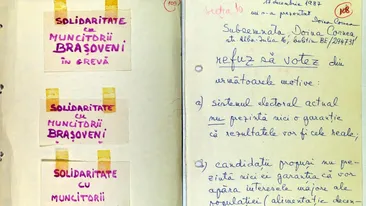 SOLIDARITATE
cu
MUNCITORII
BRAȘOVENI
ÎN GREVĂ
SOLIDARITATE
cu
MUNCITORII
BRAȘOVENI
SOLIDARITATE
CU
MUNCITORII
1987
nu s-a prezentat
Doina Cornea
Subsemnata, Doina Cornea,
refuz să votez din
următoarele motive:
a) sistemul electoral actual
nu prezintă nici o garanție
că rezultatele vor fi cele reale;
b) candidații propuși nu pre-
zintă nici ei garanția că vor
apăra interesele majore ale
populației (alimentație decen-